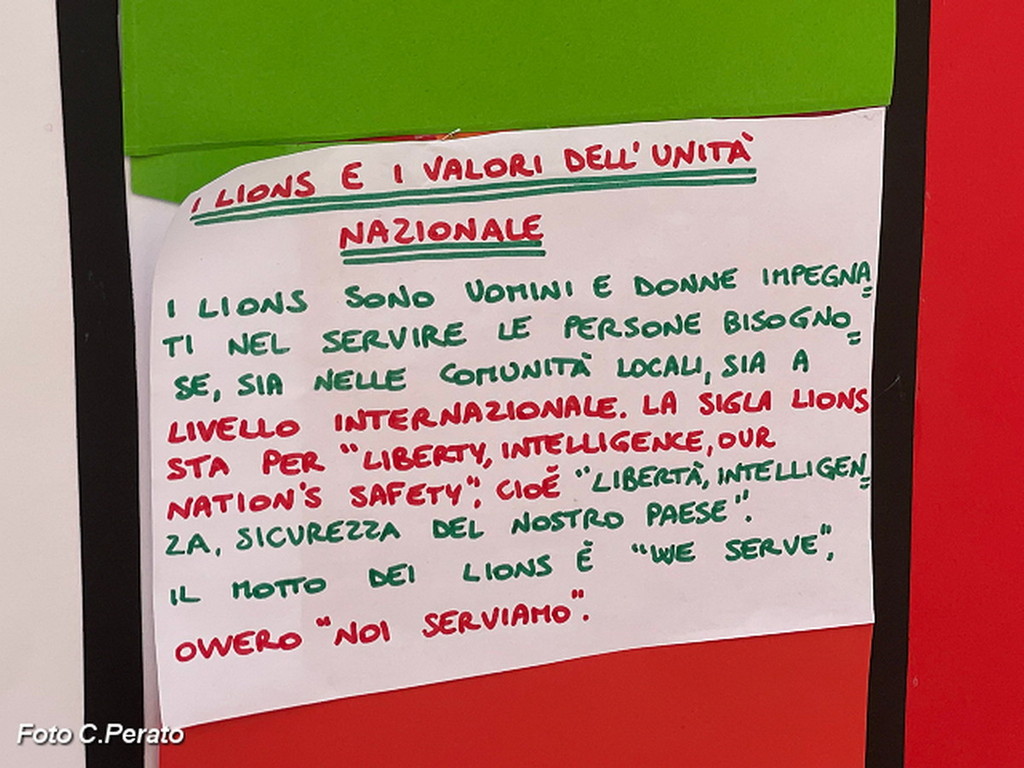 I LIONS E I VALORI DELL'UNITÀ
NAZIONALE
I LIONS SONO UOMINI E DONNE IMPEGNA
TI NEL SERVIRE LE PERSONE BISOGNO
SE, SIA NELLE COMUNITÀ LOCALI, SIA A
LIVELLO INTERNAZIONALE. LA SIGLA LIONS
STA PER "LIBERTY, INTELLIGENCE, OUR
NATION'S SAFETY", CIOÈ "LIBERTÀ, INTELLIGEN
ZA, SICUREZZA DEL NOSTRO PAESE".
IL MOTTO DEI LIONS È "WE SERVE",
OVVERO "NOI SERVIAMO".
Foto C.Perato